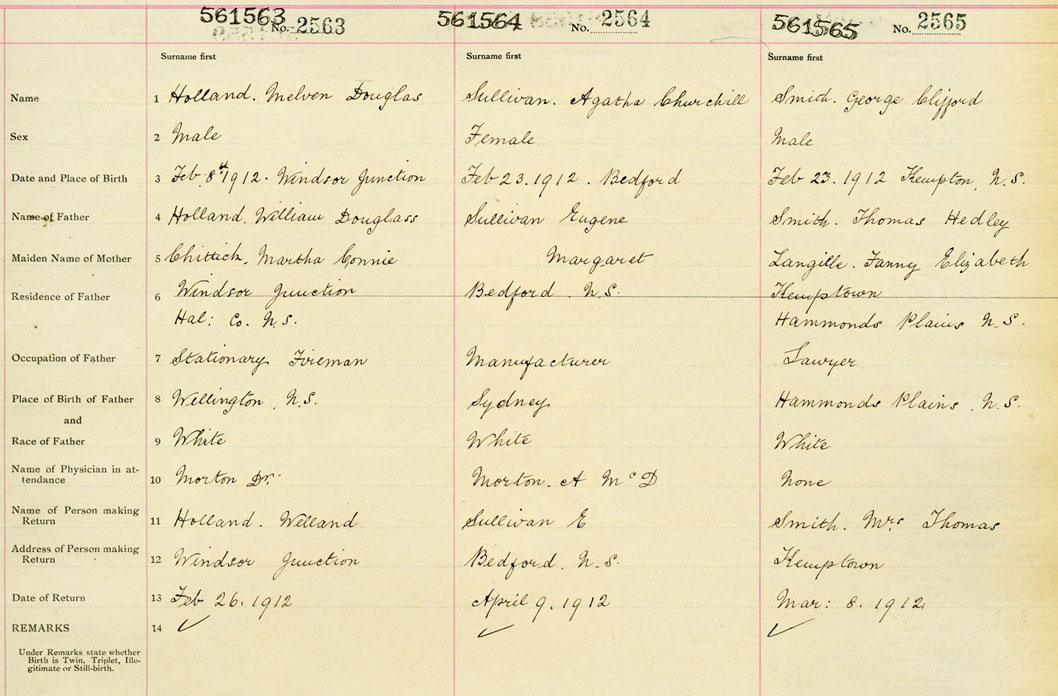 561563 No. 2563 561564 No. 2564 561565 No. 2565
Surname first Surname first Surname first
Name 1 Holland. Melven Douglas Sullivan. Agatha Churchill Smith. George Clifford
Sex 2 Male Female Male
Date and Place of Birth 3 Feb. 8th 1912. Windsor Junction Feb 23. 1912. Bedford Feb 23. 1912 Kempton, N.S.
Name of Father 4 Holland, William Douglass Sullivan Eugene Smith. Thomas Hedley
Maiden Name of Mother 5 Chittick, Martha Connie Margaret Langille. Fanny Elizabeth
Residence of Father 6 Windsor Junction Bedford. N.S. Kemptown
Hal: Co. N.S. Hammonds Plains N.S.
Occupation of Father 7 Stationary Fireman Manufacturer Lawyer
Place of Birth of Father 8 Wellington, N.S. Sydney Hammonds Plains, N.S.
and
Race of Father 9 White White White
Name of Physician in at-
tendance 10 Morton Dr. Morton. A McD None
Name of Person making
Return 11 Holland. Welland Sullivan E Smith. Mrs Thomas
Address of Person making
Return 12 Windsor Junction Bedford. N.S. Kemptown
Date of Return 13 Feb 26. 1912 April 9. 1912 Mar: 8. 1912
REMARKS 14 ✓ ✓ ✓
Under Remarks state whether
Birth is Twin, Triplet, Ille-
gitimate or Still-birth.